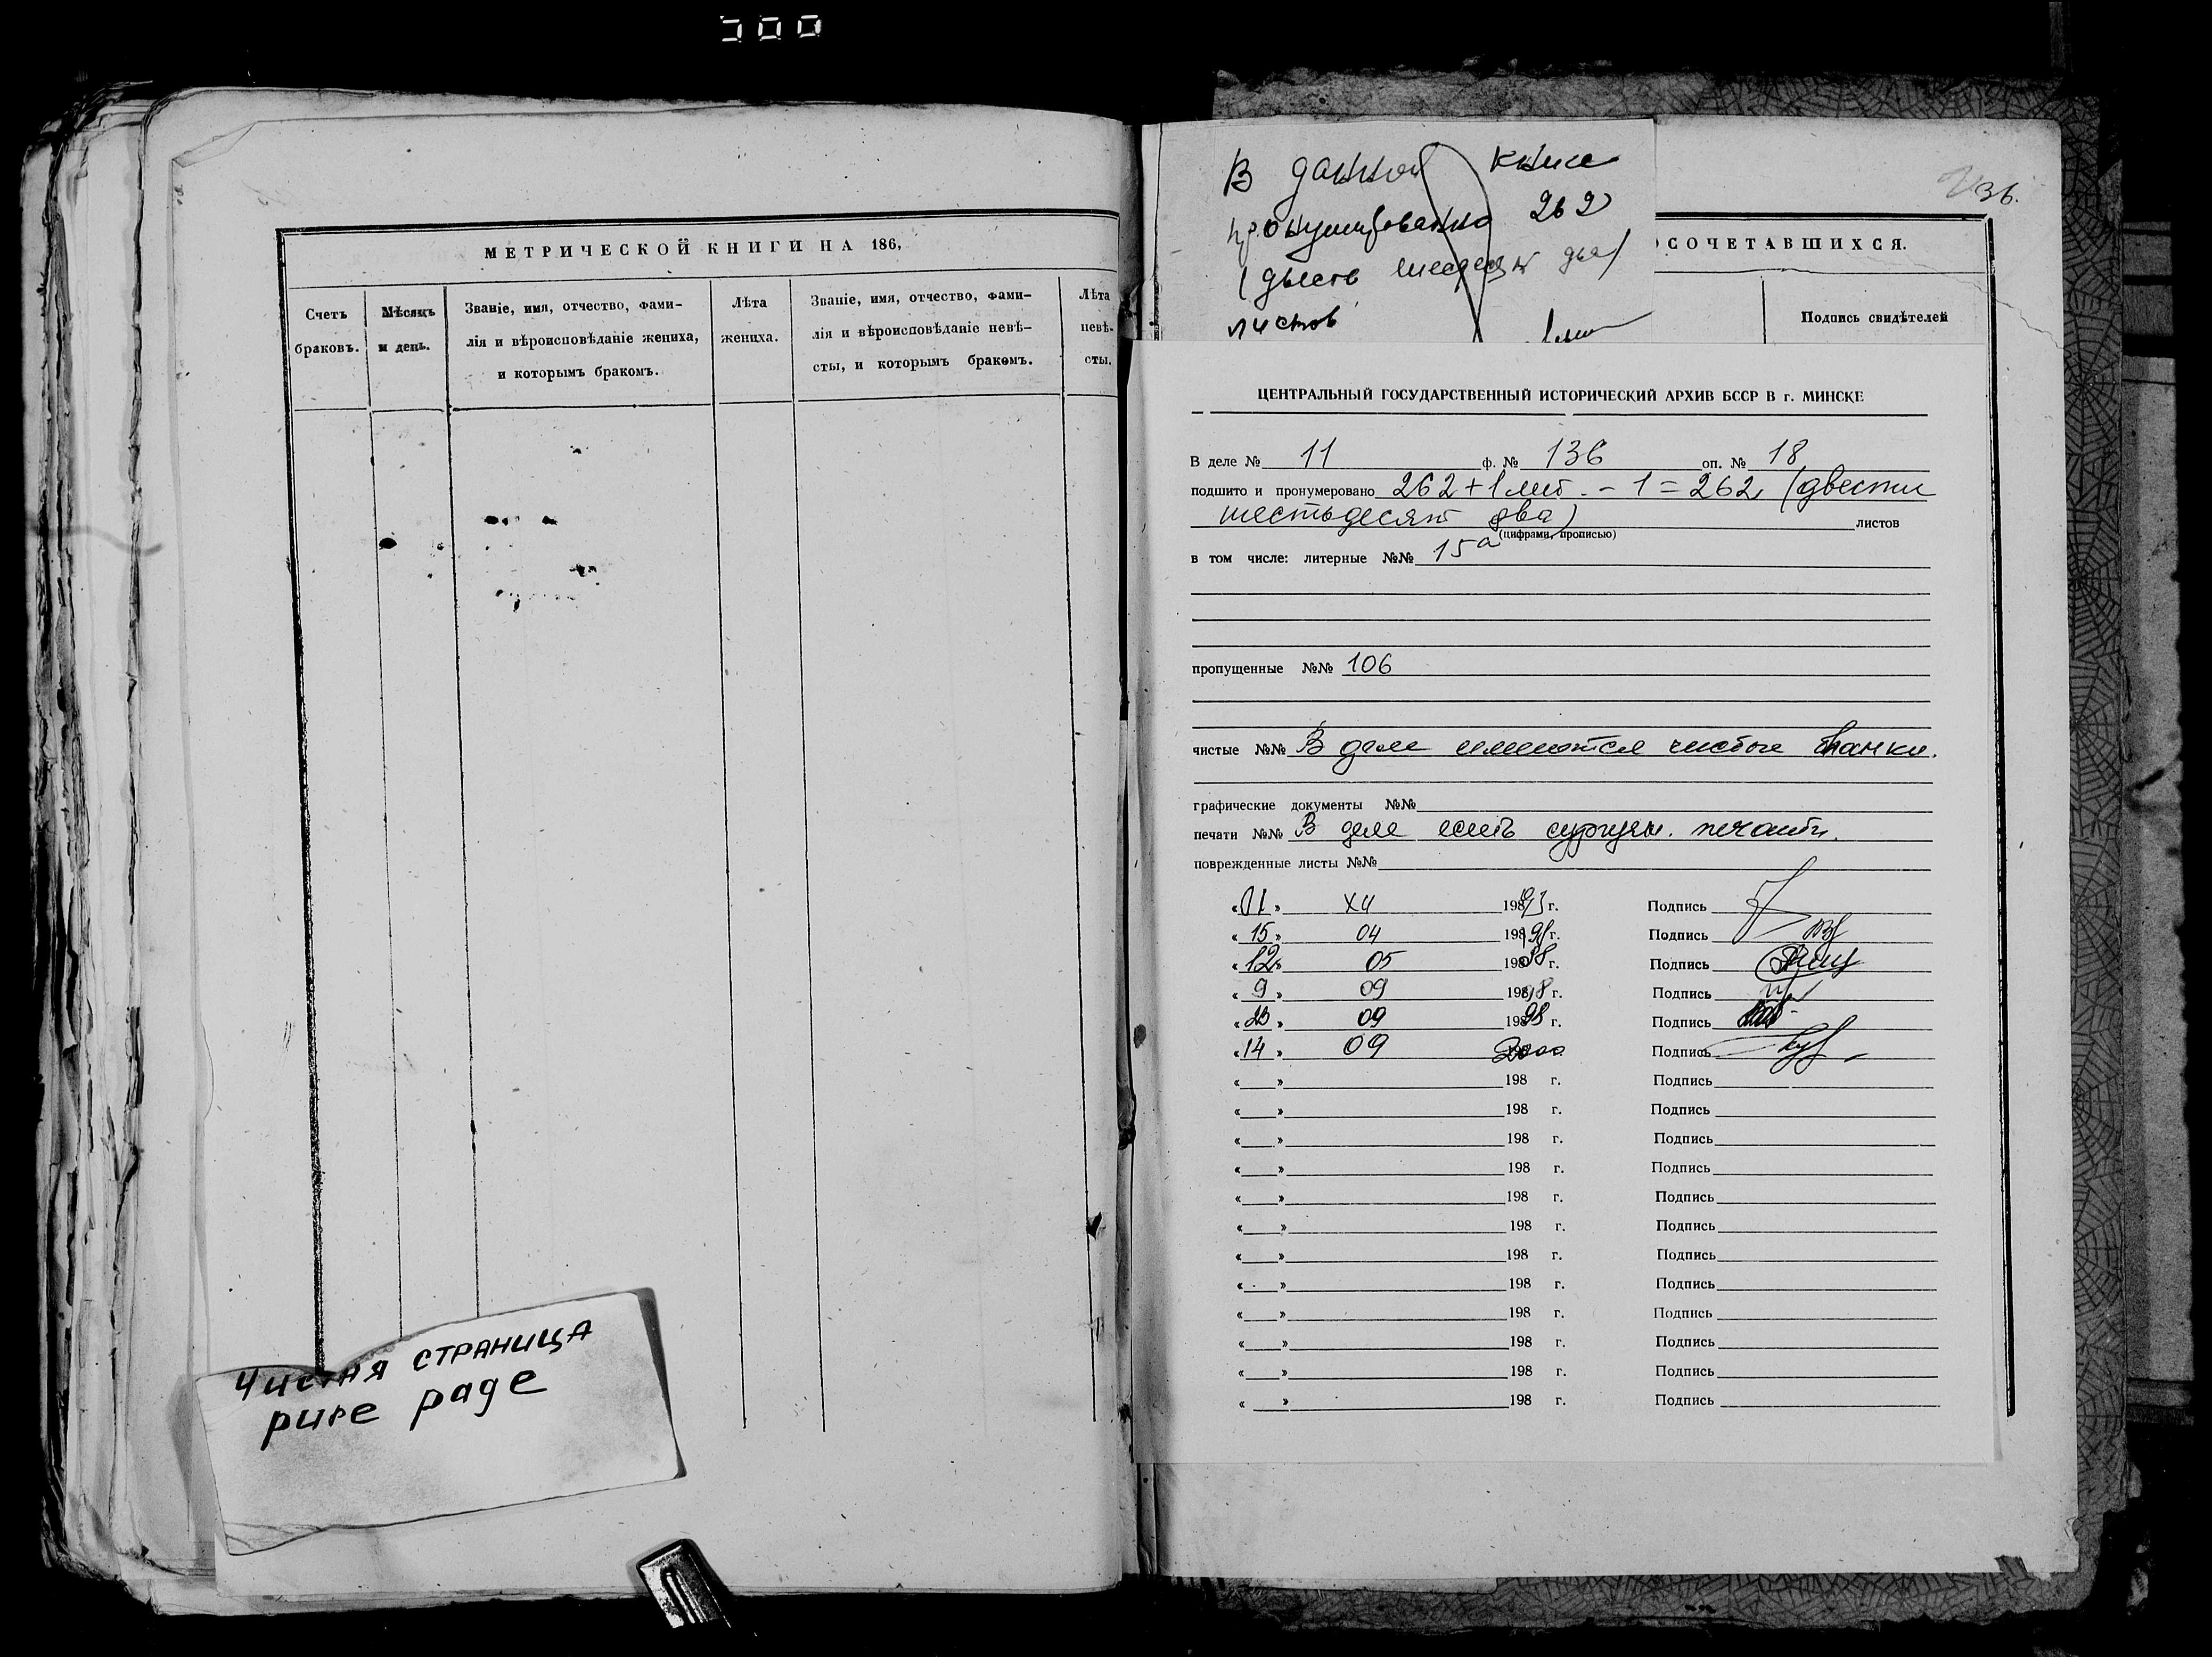 МЕТРИЧЕСКОЙ КНИГИ НА 186,
Счетъ
браковъ.
Мѣсяцъ
и день.
Званіе, имя, отчество, фами-
лія и вѣроисповѣданіе жениха,
и которымъ бракомъ.
Лѣта
жениха.
Званіе, имя, отчество, фами-
лія и вѣроисповѣданіе невѣ-
сты, и которымъ бракомъ.
Лѣта
невѣ-
сты.
Чистая страница
pure page
36.
В данной книге
пронумеровано 262
(двести шестдесят два)
листов
ОСОЧЕТАВШИХСЯ.
Подпись свидѣтелей
ЦЕНТРАЛЬНЫЙ ГОСУДАРСТВЕННЫЙ ИСТОРИЧЕСКИЙ АРХИВ БССР В г. МИНСКЕ
В деле № 11 ф. № 136 оп. № 18
подшито и пронумеровано 262 + 1 лит. - 1 = 262, (двести
шестьдесят два) листов
(цифрами, прописью)
в том числе: литерные №№ 15а
пропущенные №№ 106
чистые №№ В деле имеются чистые бланки.
графические документы №№
печати №№ В деле есть сургучн. печати.
поврежденные листы №№
«01» XII 198 г. Подпись
«15» 04 198 г. Подпись
«12» 05 198 г. Подпись
«9» 09 198 г. Подпись
«23» 09 198 98 г. Подпись
«14» 09 2000 Подпись
« » 198 г. Подпись
« » 198 г. Подпись
« » 198 г. Подпись
« » 198 г. Подпись
« » 198 г. Подпись
« » 198 г. Подпись
« » 198 г. Подпись
« » 198 г. Подпись
« » 198 г. Подпись
« » 198 г. Подпись
« » 198 г. Подпись
« » 198 г. Подпись